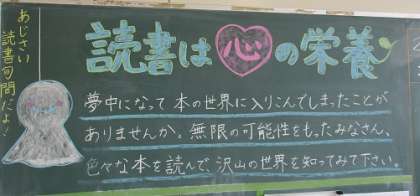 あじさい
読書旬間だよ!
読書は心の栄養
夢中になって本の世界に入りこんでしまったことが
ありませんか。無限の可能性をもったみなさん、
色々な本を読んで、沢山の世界を知ってみて下さい。